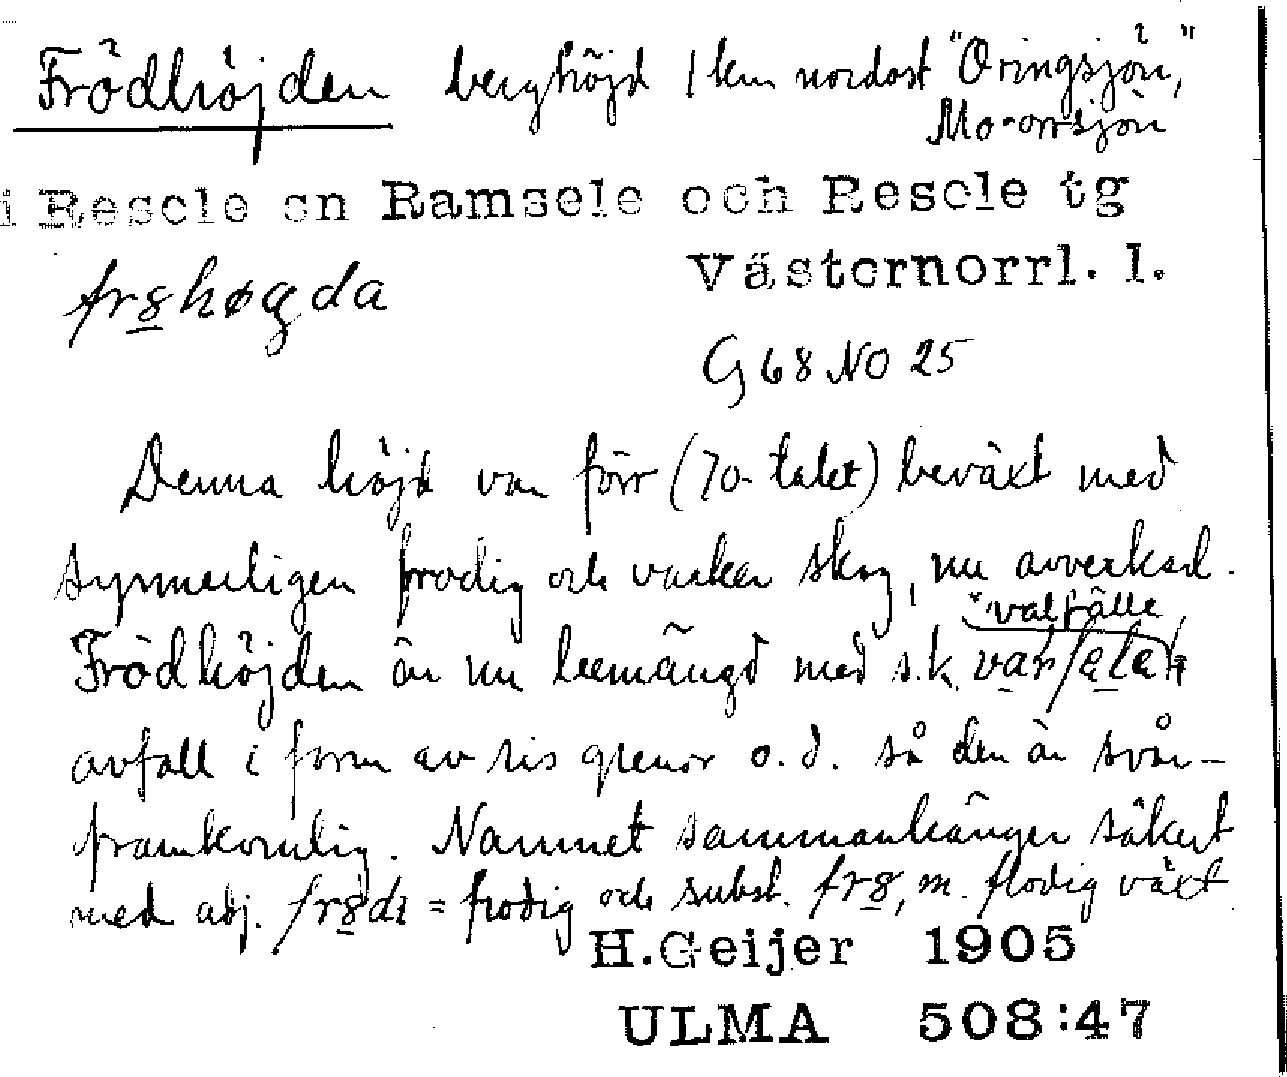 Frödhöjden berghöjd 1 km nordost "Oringsjön,"
Mo-orrsjön
i Resele sn Ramsele och Resele tg
Västernorrl. l.
frȣhøgda
G 68 NO 25
Denna höjd var förr (70-talet) beväxt med
synnerligen frodig och vacker skog, nu avverkad.
"valfälle
Frödhöjden är nu bemängd med s.k.
avfall i form av ris grenar o.d. så den är svår-
framkomlig. Namnet sammanhänger säkert
med adj. frȣdi = frodig och subst. frȣ, m. frodig växt
H.Geijer 1905
ULMA 508:47